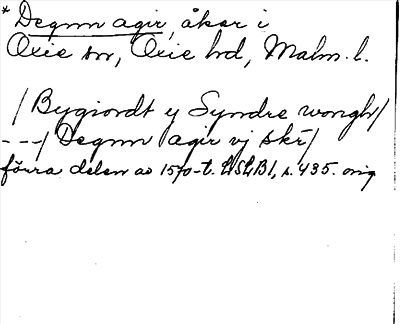 * Degnn agir, åkar i
Oxie sn, Oxie hd, Malm. l.
/Bygiordt y Syndre wongh/
---/Degnn agir vj skr/
förra delen av 1570-t. LSLB1, s. 435. orig